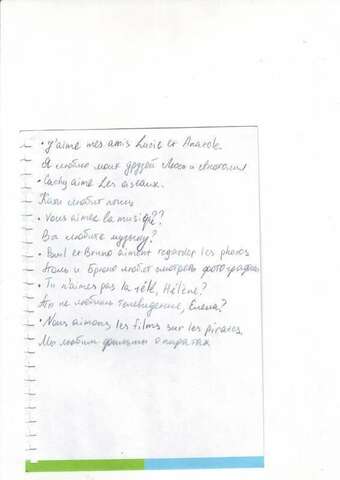 • J'aime mes amis Lucie et Anatole.
Я люблю моих друзей Люси и Анатолия
• Cathy aime Les oiseaux.
Кати любит птиц
• Vous aimez la musique?
Вы любите музыку?
• Paul et Bruno aiment regarder les photos
Поль и Брюно любят смотреть фотографии
• Tu n'aimes pas la télé, Hélène?
Ты не любишь телевидение, Елена?
• Nous aimons les films sur les pirates
Мы любим фильмы о пиратах